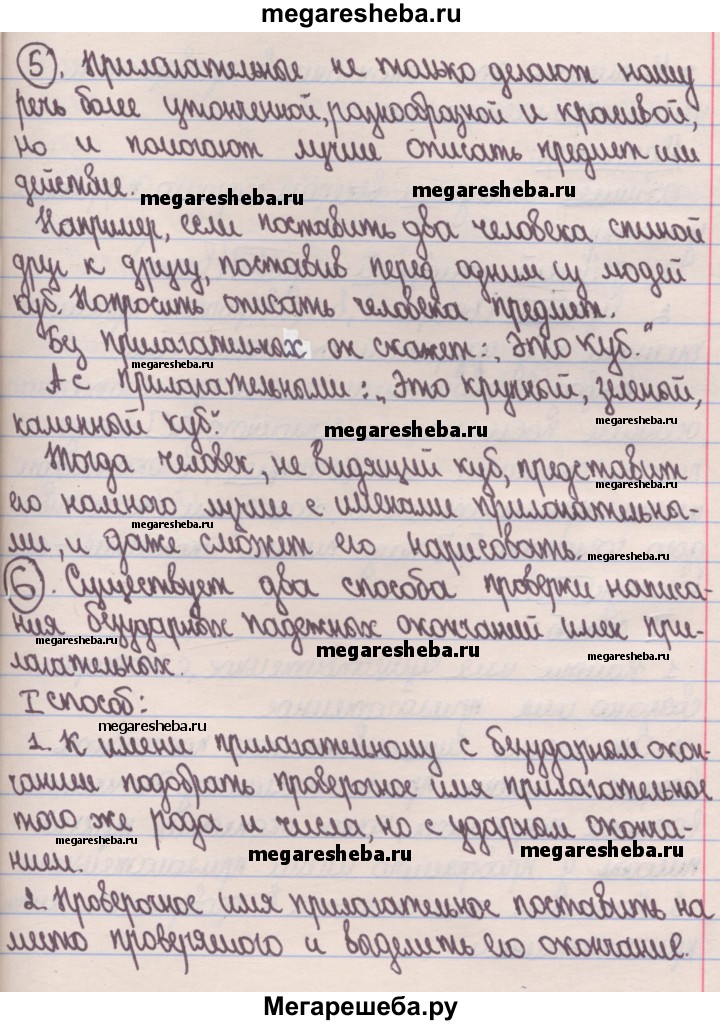 megaresheba.ru
5). Прилагательное не только делают нашу
речь более утонченной, разнообразной и красивой,
но и помогают лучше описать предмет или
действие.
megaresheba.ru
megaresheba.ru
Например, если поставить два человека спиной
друг к другу, поставив перед одним из людей
куб. Попросить описать человека предмет.
Без прилагательных он скажет: „Это куб.“
megaresheba.ru
А с прилагательными: „Это крупный, зеленый,
каменный куб“.
megaresheba.ru
megaresheba.ru
Тогда человек, не видящий куб, представит
его намного лучше с именами прилагательны-
megaresheba.ru
megaresheba.ru
ми, и даже сможет его нарисовать.
megaresheba.ru
6). Существует два способа проверки написа-
ния безударных падежных окончаний имен при-
megaresheba.ru
megaresheba.ru
megaresheba.ru
лагательных.
I способ:
megaresheba.ru
1. К имени прилагательному с безударным окон-
чанием подобрать проверочное имя прилагательное
того же рода и числа, но с ударным оконча-
megaresheba.ru
megaresheba.ru
megaresheba.ru
нием.
2. Проверочное имя прилагательное поставить на
место проверяемого и выделить его окончание.
Мегарешеба.ру